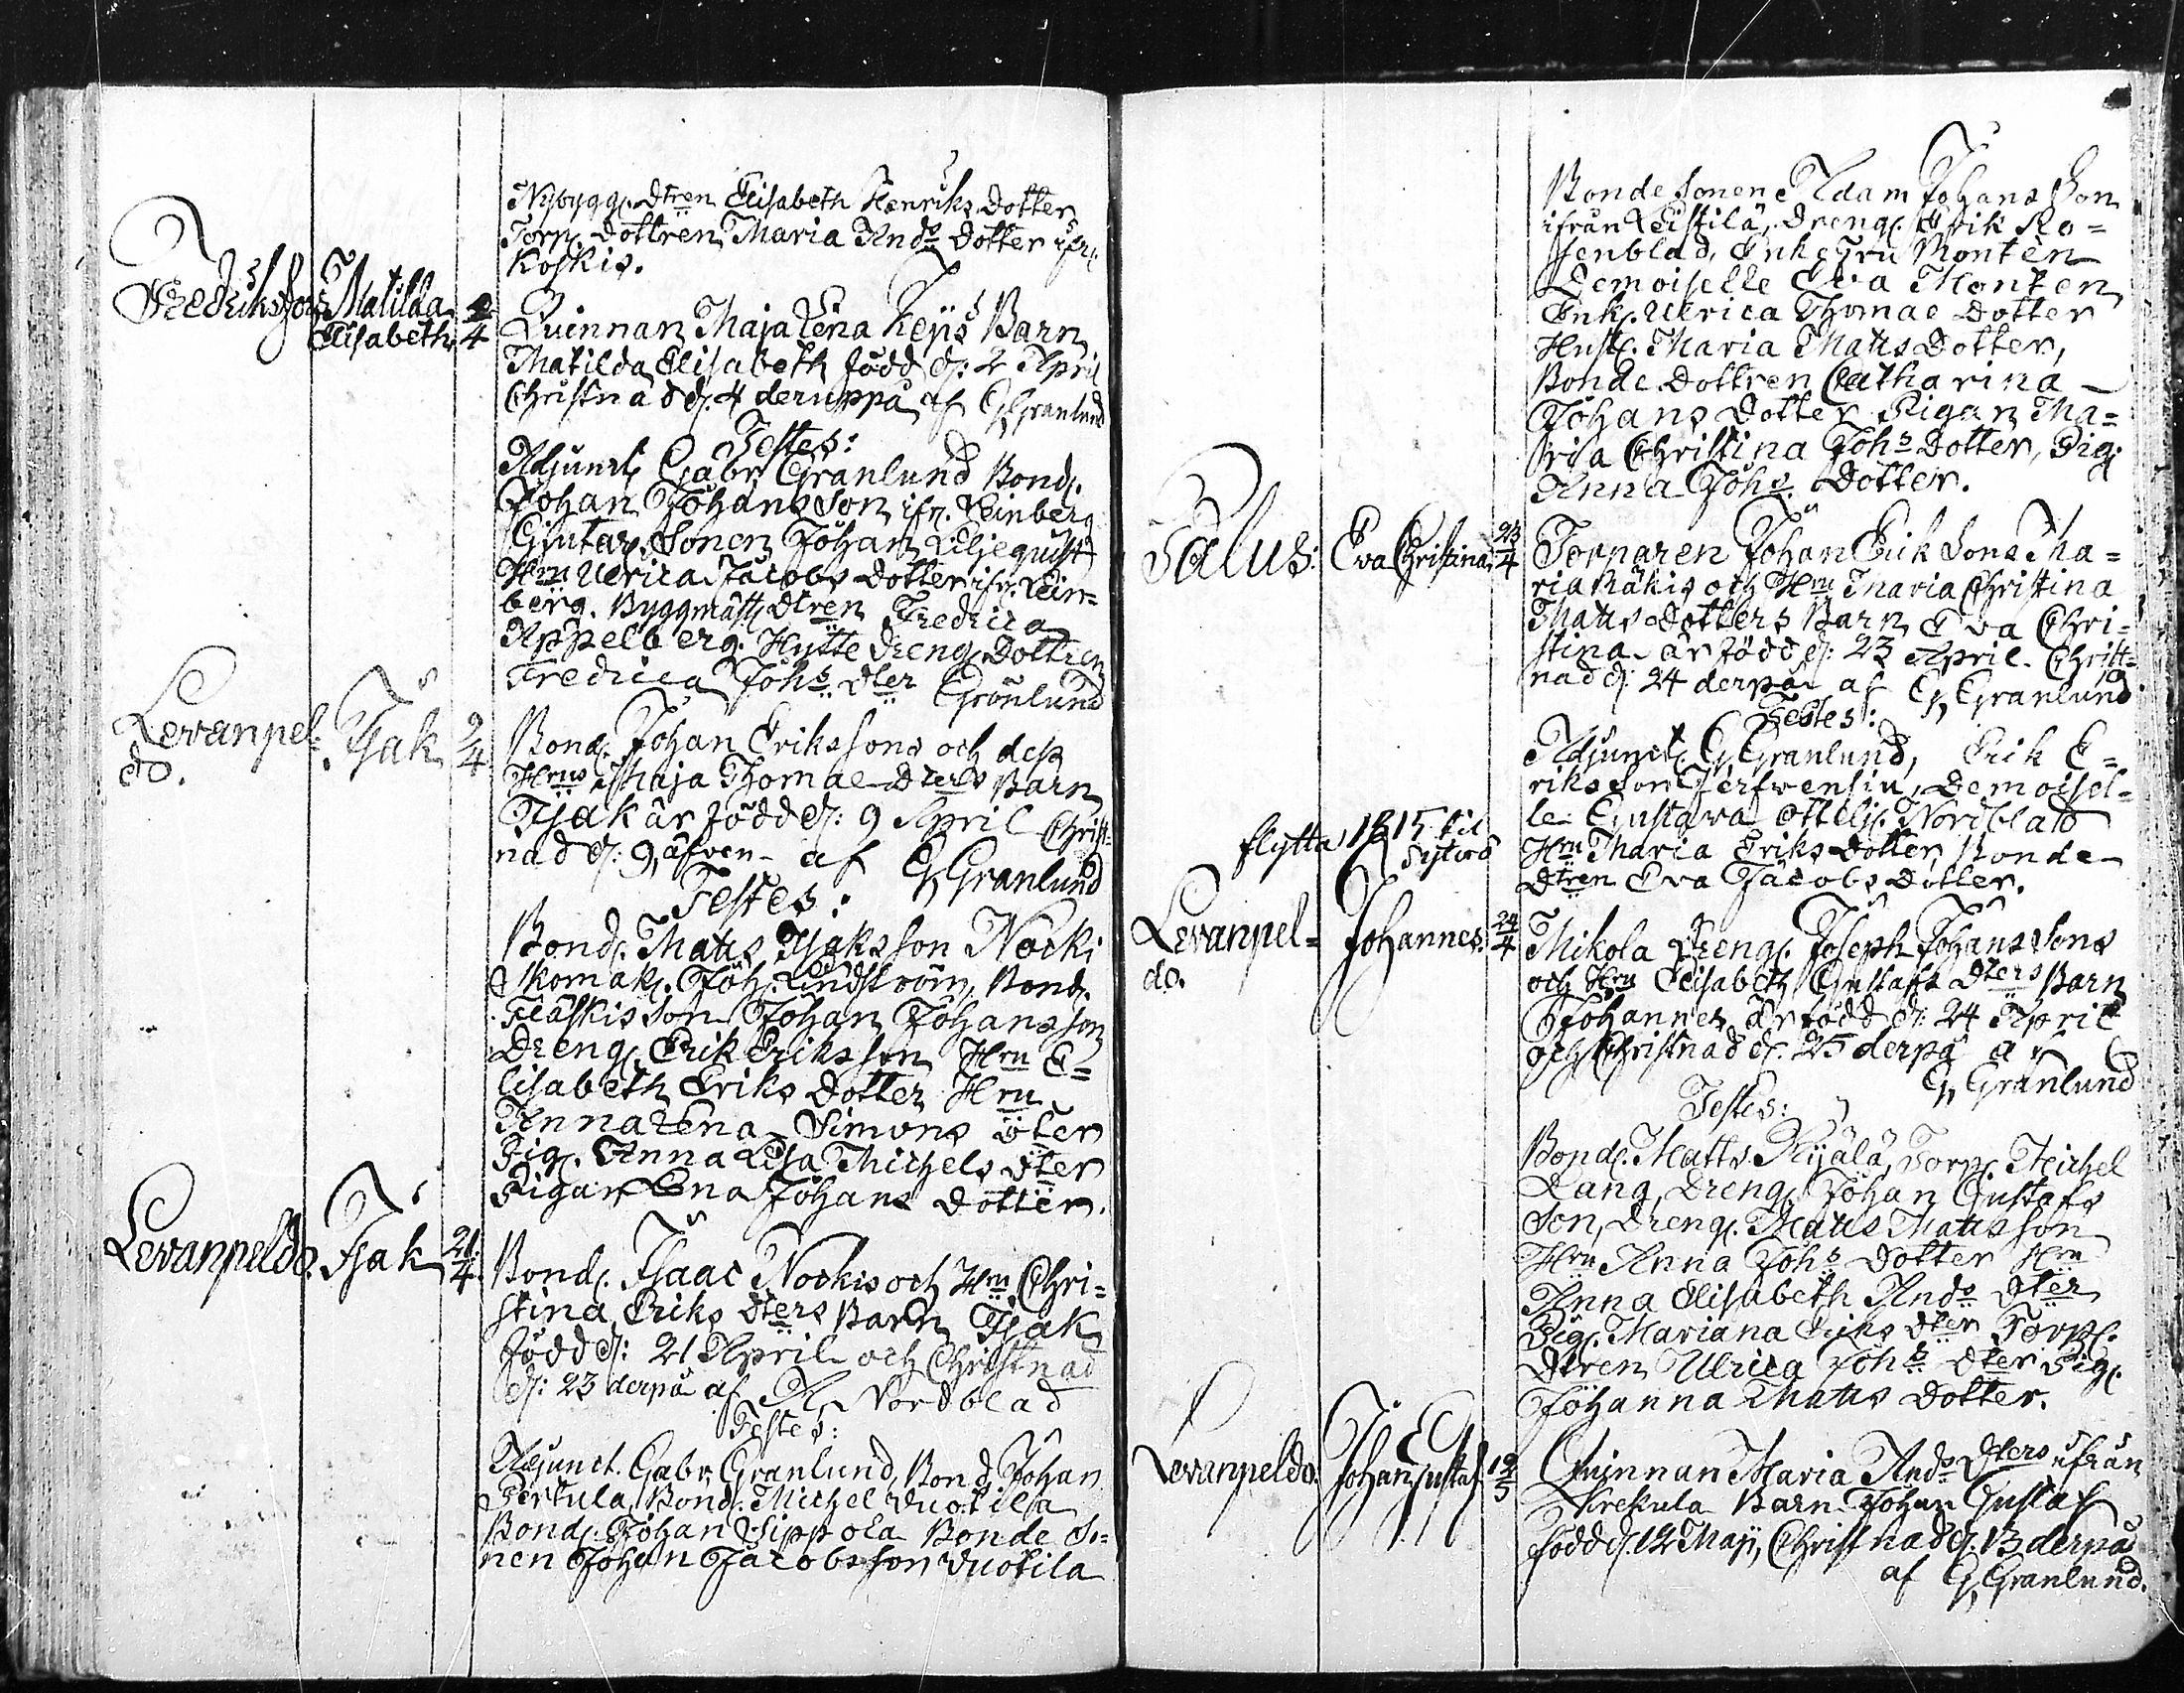 Nybygg. Dtren Elisabeth Henriks Dotter
Torp. Dottren Maria Ands Dotter ifrå
Koskis.
Fredriksfors Matilda Elisabeth 2/4
Quinnan Maja Lena Keijs Barn
Matilda Elisabeth född d: 2 April
Christnad d. 4 deruppå af G Granlund
Testes:
Adjunct. Gabr. Granlund Bond.
Johan Johansson ifr. Leinberg
Gjutar. Sonen Johan Liljequist
Hru Ulrica Jacobs Dotter ifr. Lein=
berg. Byggmäst. Dtren Fredrica
Appelberg. Hytte Dreng. Dottren
Fredrica Johs Dter Grönlund
Levanpel=
do.
Isak 9/4
Bond. Johan Erikssons och dess
Hrus Maja Thomae Dters Barn
Isak är född d: 9 April Christ=
nad d: 9 äfven af G Granlund
Testes:
Bond. Matts Isaksson Nocki
Skomak. Joh. Lindström, Bond.
Fläskis Son Johan Johansson
Dreng. Erik Eriksson Hru E=
lisabeth Eriks Dotter Hru
Anna Lena Simons Dter
Pig. Anna Lisa Michels Dter
Pigan Lena Johans Dotter.
Levanpeldo. Isak 21/4
Bond. Isaac Nockis och Hru Chri=
stina Eriks Dters Barn Isak
född d: 21 April och Christnad
d: 23 derpå af A Nordblad
Testes:
Adjunct. Gabr. Granlund, Bond. Johan
Pertula, Bond. Michel Vuotila
Bond. Johan Sippola Bonde So=
nen Johan Jacobsson Vuotila
Bonde Sonen Adam Johans Son
ifrån Leistilä, Dreng. Erik Ro=
senblad, Enke Fru Montén
Demoiselle Eva Montén
Enk. Ulrica Thomae Dotter
Hust. Maria Matts Dotter,
Bonde Dottren Catharina
Johans Dotter Pigan Ma=
ria Christina Johs Dotter, Pig.
Anna Johs Dotter.
Salus: Eva Christina 23/4
Torparen Johan Erik Sons Ma=
ria och Hru Maria Christina
Matts Dotters Barn Eva Chri=
stina är född d: 23 April Christ=
nad d: 24 derpå af G Granlund
Testes:
Adjunct. G Granlund, Erik E=
riksson Jerfvensiu, Demoisel=
le Gustava Ottelj. Nordblad
Hru Maria Eriks Dotter, Bonde
Dtren Eva Jacobs Dotter.
flytta 1815 til
Levanpel=
do.
Johannes 24/4
Mikola Dreng. Joseph Johanssons
och Hru Elisabeth Gustafs Dters Barn
Johannes är född d: 24 April
och Christnad d. 25 derpå af
G Granlund
Testes:
Bond. Matts Kijälä, Torp. Michel
Lang, Dreng. Johan Gustafs
Son, Dreng. Matts Mattsson
Hru Anna Johs Dotter Hru
Anna Elisabeth Ands Dter
Pig. Mariana Eriks Dter Torp.
Dtren Ulrica Johs Dter Pig.
Johanna Matts Dotter.
Levanpeldo. Johan Gustaf 12/5
Quinnan Maria Ands Dters ifrån
Krekula Barn Johan Gustaf
född d. 12 Maji, Christnad d. 13 derpå
af G Granlund.